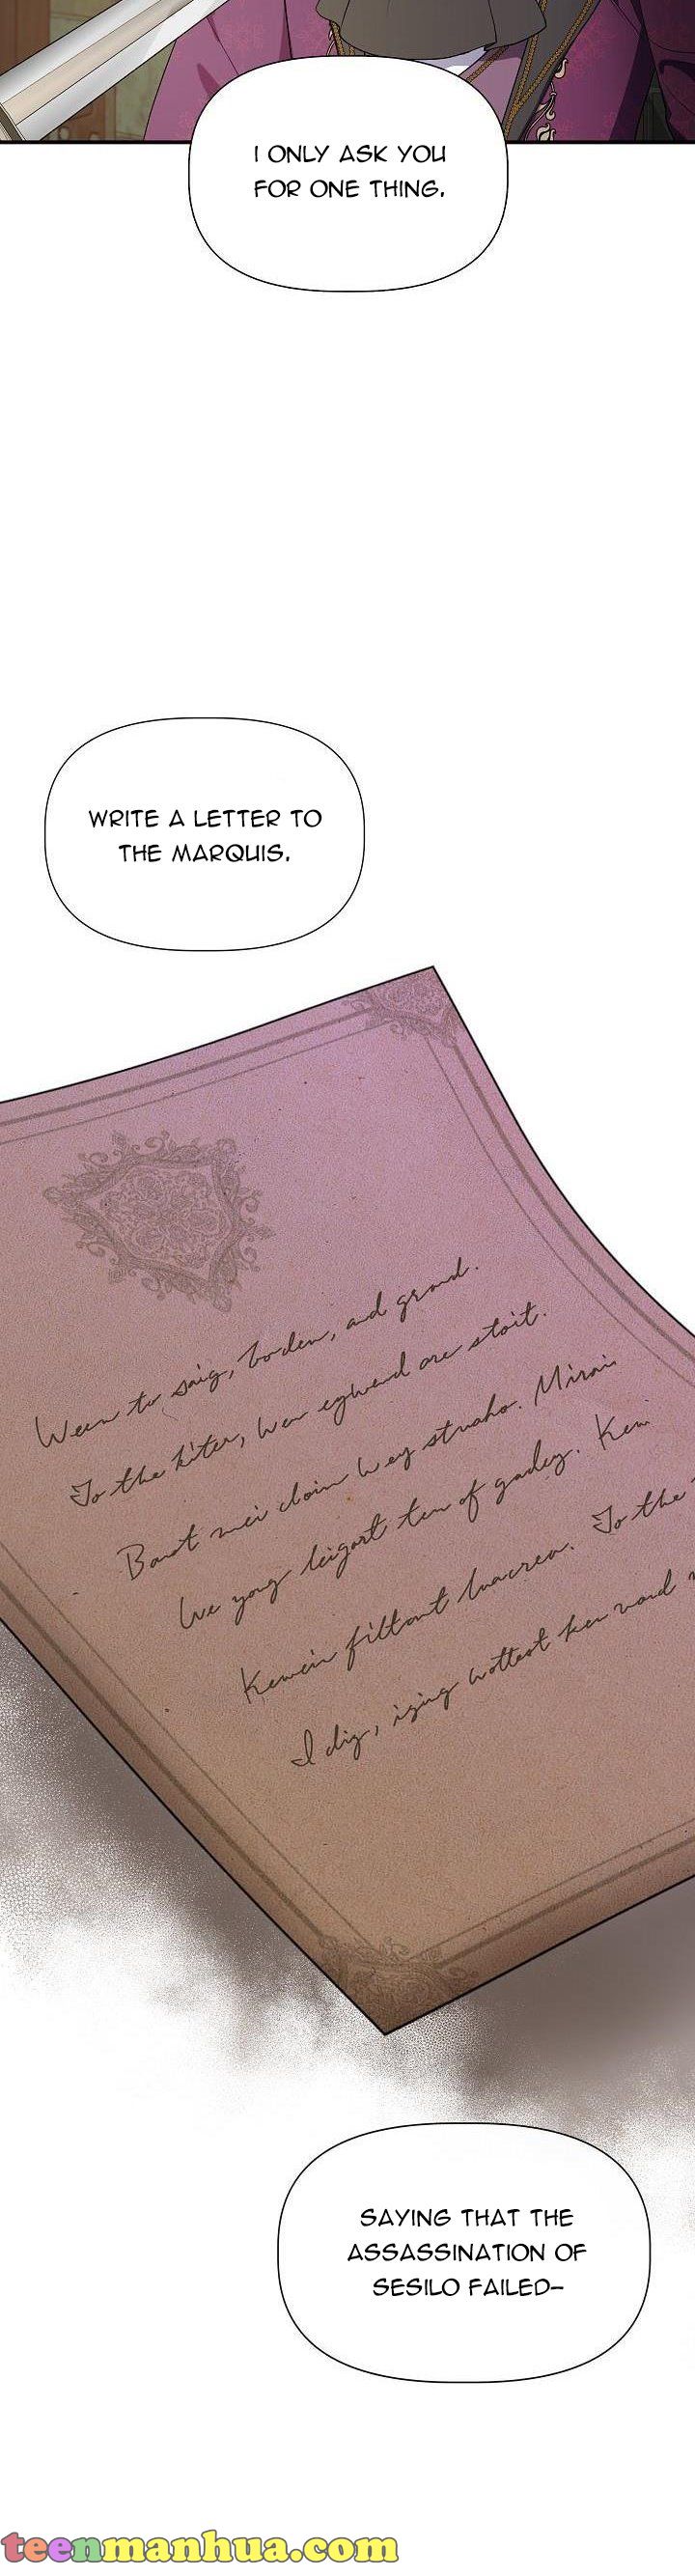 I ONLY ASK YOU
FOR ONE THING.
WRITE A LETTER TO
THE MARQUIS.
Ween to saig, boden, and grond.
To the kiter, wen egwend are stoit.
Banot mei cloin wey
We yong leigart ten of gadey. Keni
Kewein filtont To the
I dig, wottest ken
SAYING THAT THE
ASSASSINATION OF
SESILO FAILED-
teenmanhua.com